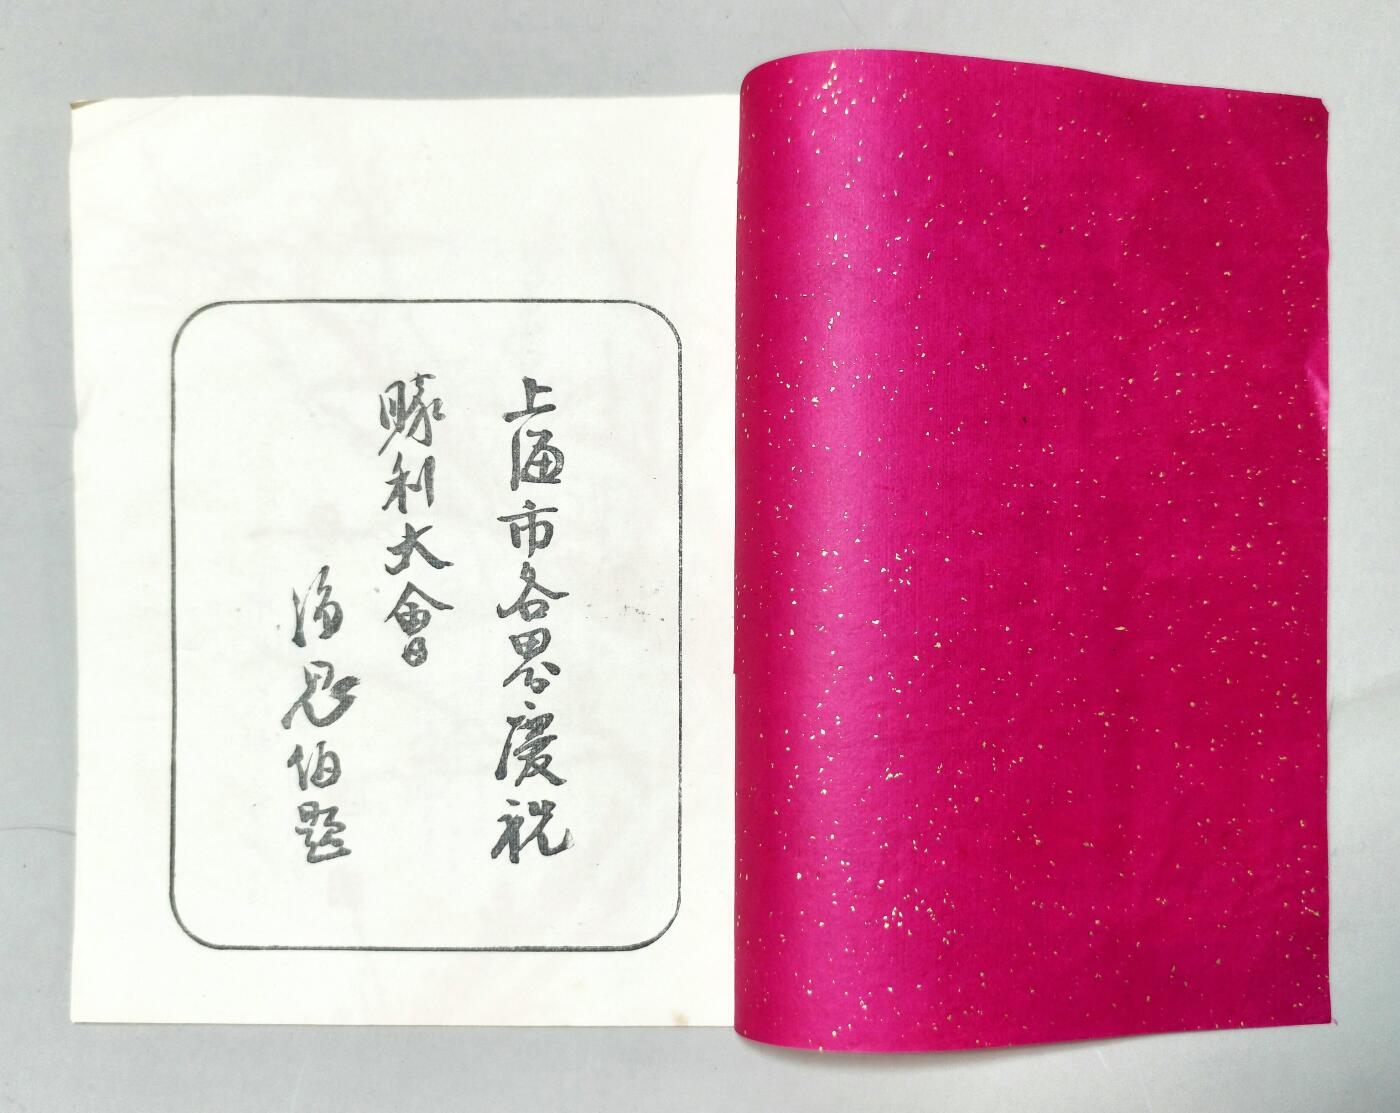 上海市各界慶祝
勝利大會
湯恩伯題